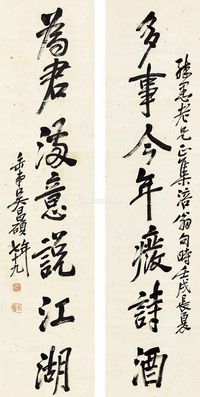 多事今年癈詩酒
老兄正集涪翁句時壬戌長夏
為君滿意說江湖
安吉吳昌碩年七十九